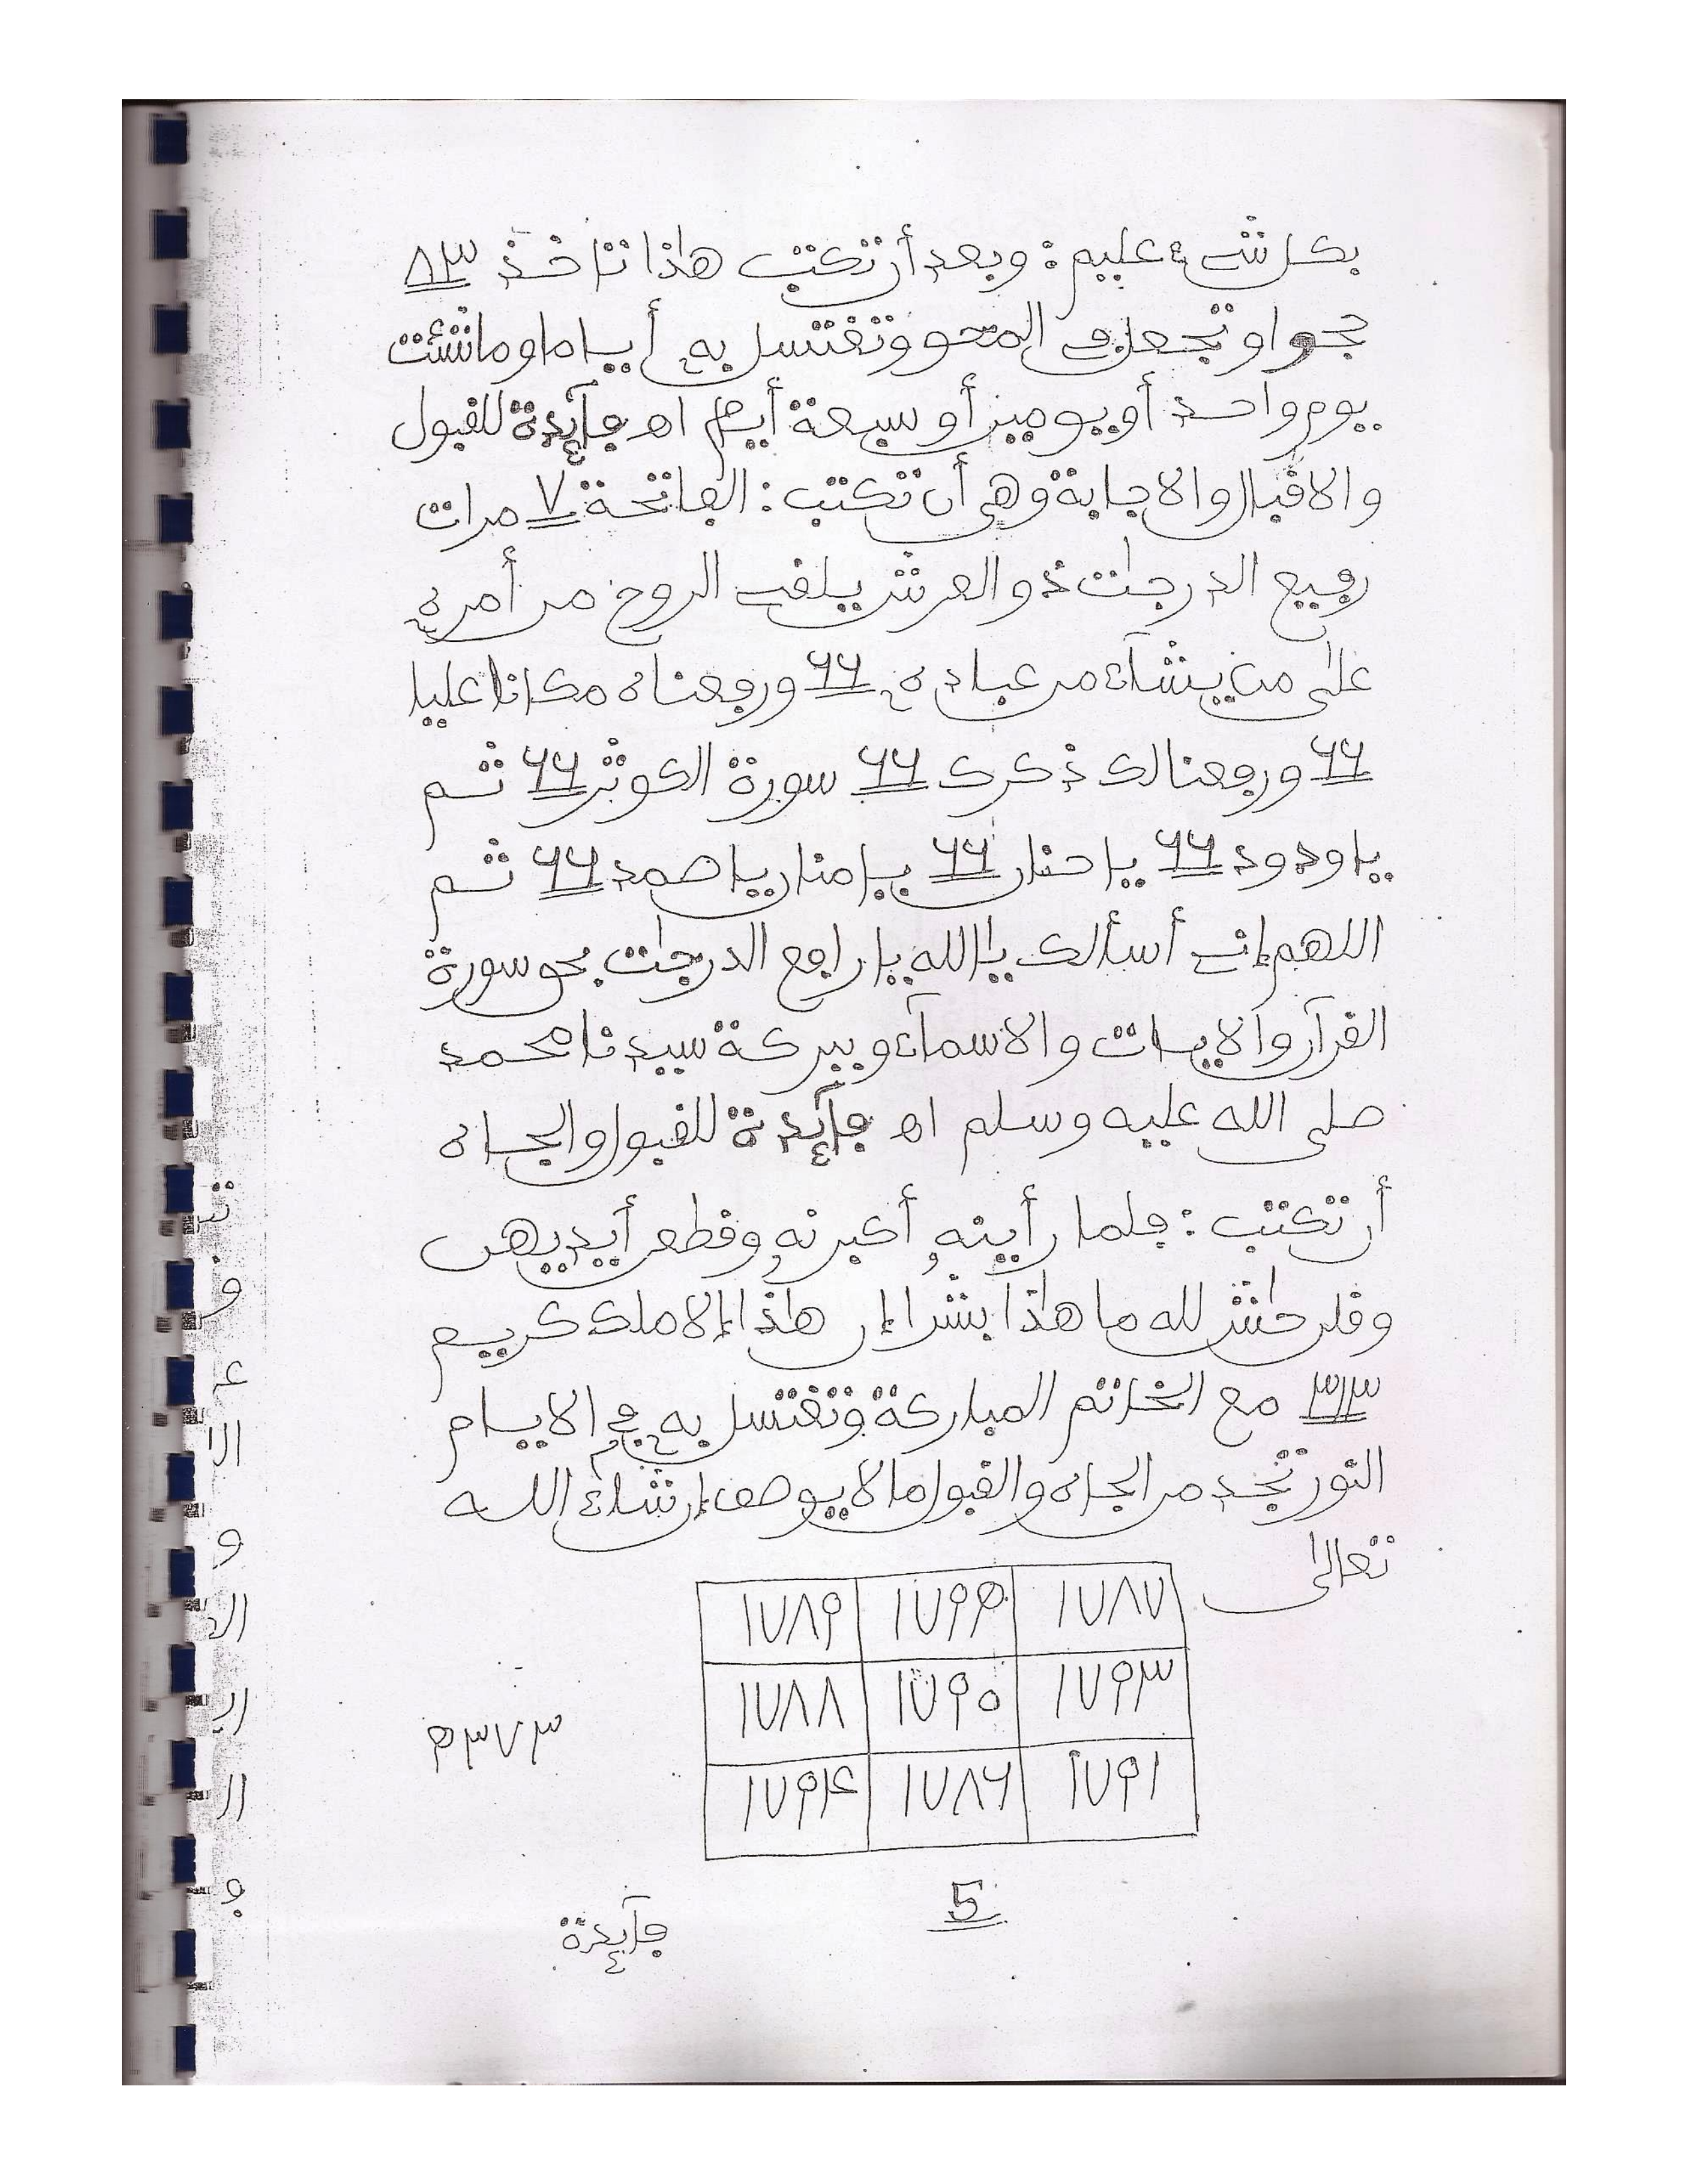 بكل شےء عليم : وبعد أن تكتب هاذا تاخذ ٨٣
نجوا وتجعل في المحو وتغتسل به أياما وما شئت
يوم واحد أو يومين أو سبعة أيام اهـ فآئدة للقبول
والاقبال والاجابة وهي أن تكتب : الفاتحة ٧ مرات
رفيع الدرجات ذو العرش يلقى الروح من أمره
على من يشآء من عباده ٦٦ ورفعناه مكانا عليا
٦٦ ورفعنا لك ذكرك ٦٦ سورة الكوثر ٦٦ ثم
يا ودود ٦٦ يا حنان ٦٦ يا منان يا صمد ٦٦ ثم
اللهم إني أسألك يا الله يا رافع الدرجات بحق سورة
القرآن والايات والاسمآء وببركة سيدنا محمد
صلى الله عليه وسلم اهـ فآئدة للقبول والجاه
أن تكتب : فلما رأينه أكبرنه وقطعن أيديهن
وقلن حاش لله ما هاذا بشرا إن هاذا إلا ملك كريم
٣١٣ مع الخاتم المباركة وتغتسل به في الايام
النور تجد من الجاه والقبول ما لا يوصف إن شاء الله
تعالى
١٧٨٧ ١٧٩٢ ١٧٨٩
١٧٩٣ ١٧٩٠ ١٧٨٨
١٧٩١ ١٧٨٦ ١٧٩٤
5
فآئدة